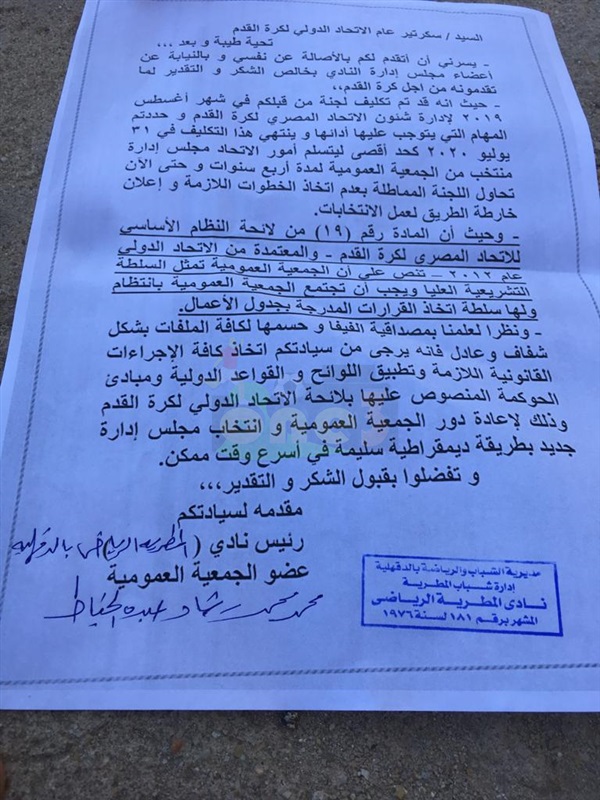 السيد / سكرتير عام الاتحاد الدولي لكرة القدم
تحية طيبة و بعد ,,,
- يسرني أن أتقدم لكم بالأصالة عن نفسي و بالنيابة عن
أعضاء مجلس إدارة النادي بخالص الشكر و التقدير لما
تقدمونه من اجل كرة القدم,,
- حيث انه قد تم تكليف لجنة من قبلكم في شهر أغسطس
٢٠١٩ لإدارة شئون الاتحاد المصري لكرة القدم و حددتم
المهام التي يتوجب عليها أدائها و ينتهي هذا التكليف في ٣١
يوليو ٢٠٢٠ كحد أقصى ليتسلم أمور الاتحاد مجلس إدارة
منتخب من الجمعية العمومية لمدة أربع سنوات و حتى الأن
تحاول اللجنة المماطلة بعدم اتخاذ الخطوات اللازمة و إعلان
خارطة الطريق لعمل الانتخابات.
- وحيث أن المادة رقم (١٩) من لائحة النظام الأساسي
للاتحاد المصري لكرة القدم - والمعتمدة من الاتحاد الدولي
عام ٢٠١٢ – تنص على أن الجمعية العمومية تمثل السلطة
التشريعية العليا ويجب أن تجتمع الجمعية العمومية بانتظام
ولها سلطة اتخاذ القرارات المدرجة بجدول الأعمال.
- ونظرا لعلمنا بمصداقية الفيفا و حسمها لكافة الملفات بشكل
شفاف وعادل فانه يرجى من سيادتكم اتخاذ كافة الإجراءات
القانونية اللازمة وتطبيق اللوائح و القواعد الدولية ومبادئ
الحوكمة المنصوص عليها بلائحة الاتحاد الدولي لكرة القدم
وذلك لإعادة دور الجمعية العمومية و انتخاب مجلس إدارة
جديد بطريقة ديمقراطية سليمة في أسرع وقت ممكن.
و تفضلوا بقبول الشكر و التقدير,,,
مقدمه لسيادتكم
رئيس نادي ( المطرية الرياضى بالدقهلية
عضو الجمعية العمومية
محمد محمد رشاد عبده الخياط
مديرية الشباب والرياضة بالدقهلية
إدارة شباب المطرية
نادى المطرية الرياضى
المشهر برقم ١٨١ لسنة ١٩٧٦